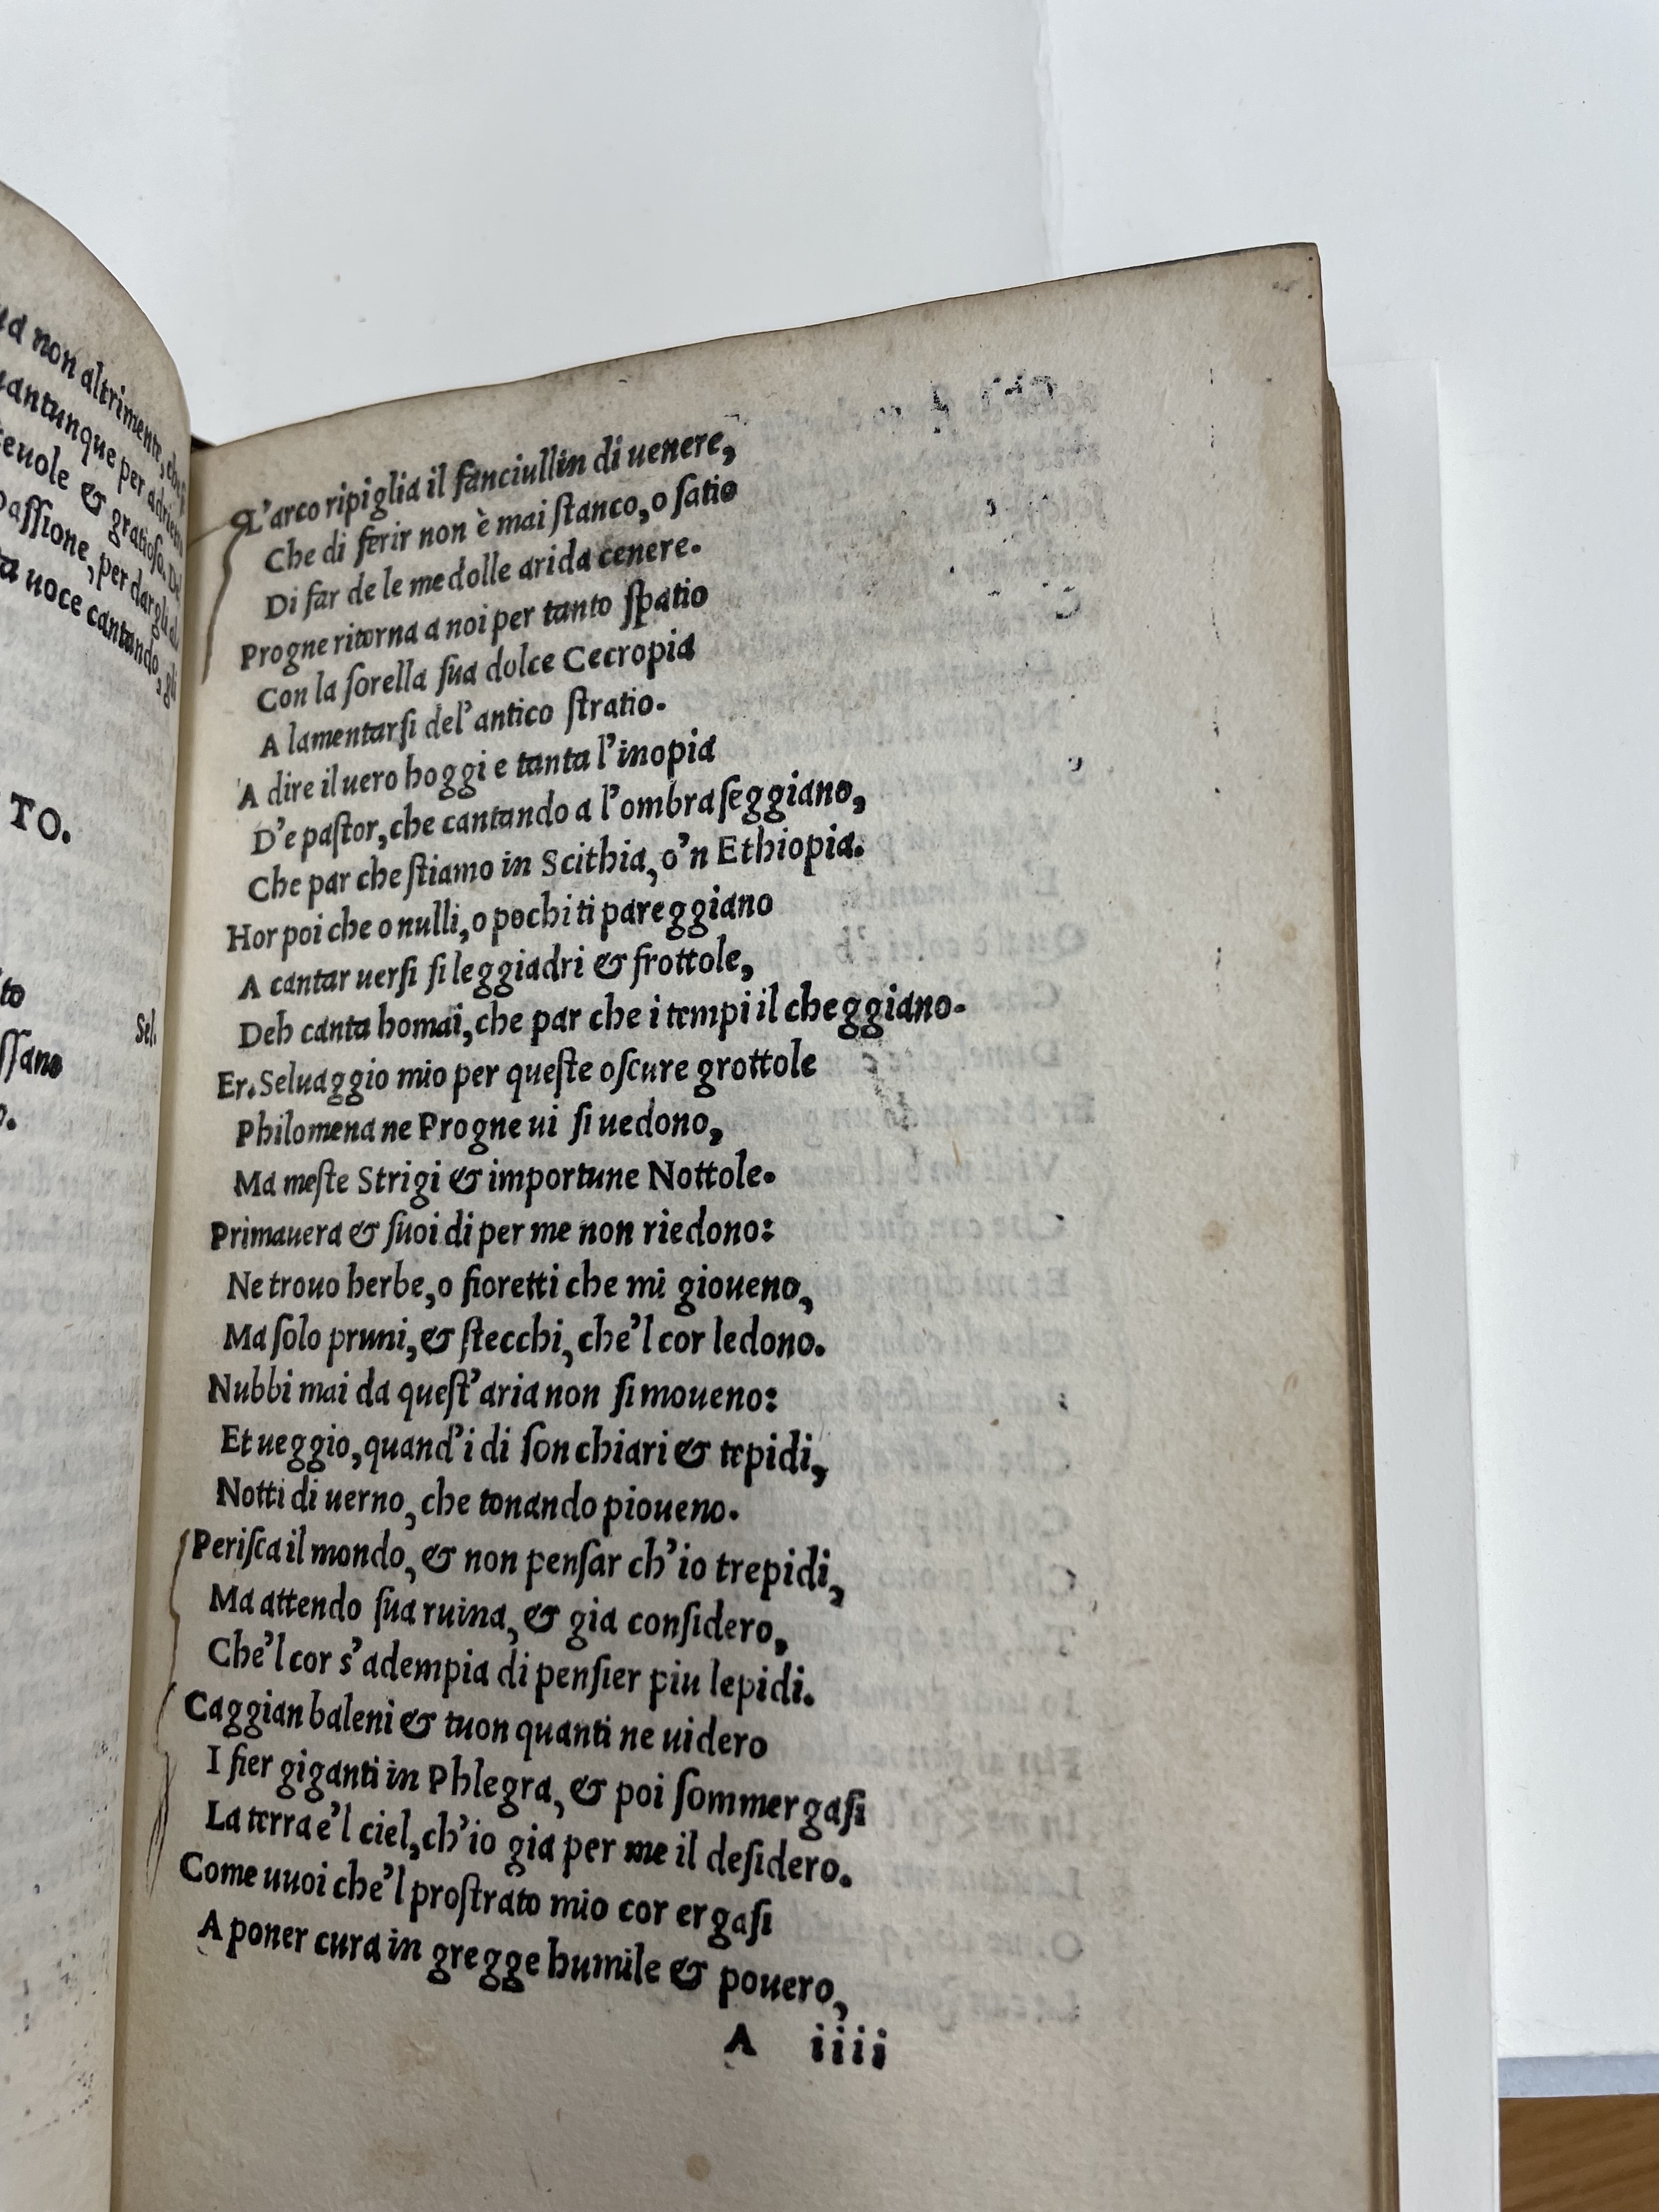 non altrimente,
uantunque per adriene
euole & gratioso. De
passione, per dargli al
uoce cantando, gli
TO.
to
Sel.
ssano
o.
L'arco ripiglia il fanciullin di uenere,
Che di ferir non è mai stanco, o satio
Di far de le medolle arida cenere.
Progne ritorna a noi per tanto spatio
Con la sorella sua dolce Cecropia
A lamentarsi del'antico stratio.
A dire il uero hoggi e tanta l'inopia
D'e pastor, che cantando a l'ombra seggiano,
Che par che stiamo in Scithia, o'n Ethiopia.
Hor poi che o nulli, o pochi ti pareggiano
A cantar uersi si leggiadri & frottole,
Deh canta homai, che par che i tempi il cheggiano.
Er. Seluaggio mio per queste oscure grottole
Philomena ne Progne ui si uedono,
Ma meste Strigi & importune Nottole.
Primauera & suoi di per me non riedono:
Ne trouo herbe, o fioretti che mi gioueno,
Ma solo pruni, & stecchi, che'l cor ledono.
Nubbi mai da quest'aria non si moueno:
Et ueggio, quand'i di son chiari & tepidi,
Notti di uerno, che tonando pioueno.
Perisca il mondo, & non pensar ch'io trepidi,
Ma attendo sua ruina, & gia considero,
Che'l cor s'adempia di pensier piu lepidi.
Caggian baleni & tuon quanti ne uidero
I fier giganti in Phlegra, & poi sommergasi
La terra e'l ciel, ch'io gia per me il desidero.
Come uuoi che'l prostrato mio cor ergasi
A poner cura in gregge humile & pouero,
A iiii